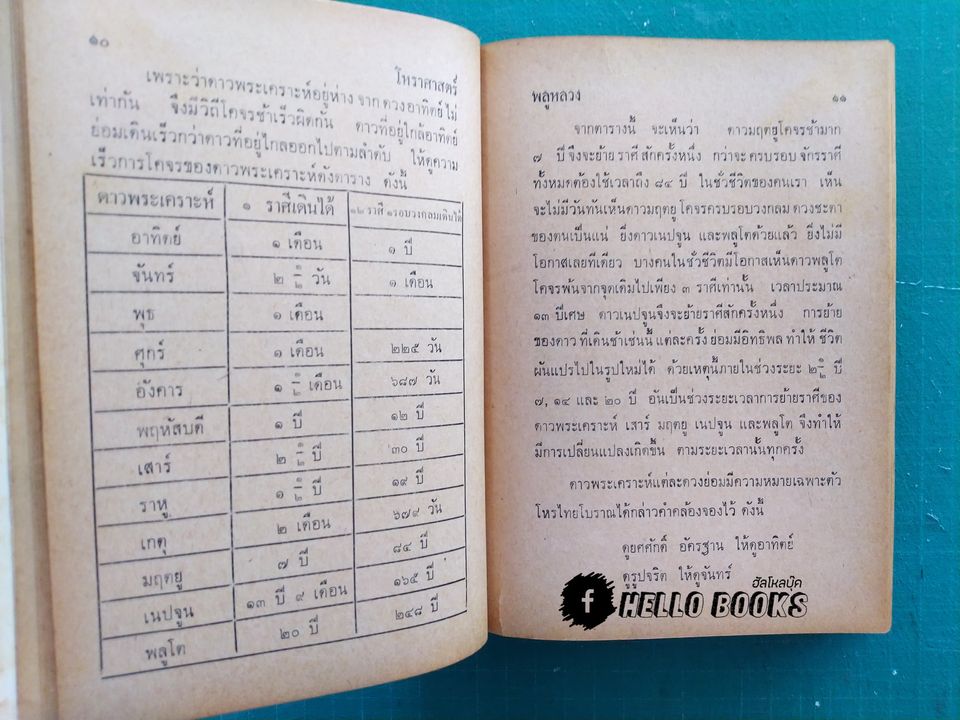 ๑๐
โหราศาสตร์
เพราะว่าดาวพระเคราะห์อยู่ห่าง จาก ดวงอาทิตย์ ไม่
เท่ากัน จึงมีวิถีโคจรช้าเร็วผิดกัน ดาวที่อยู่ใกล้อาทิตย์
ย่อมเดินเร็วกว่าดาวที่อยู่ไกลออกไปตามลำดับ ให้ดูความ
เร็วการโคจรของดาวพระเคราะห์ดังตาราง ดังนี้
ดาวพระเคราะห์ ๑ ราศีเดินได้ ๑๒ ราศี ๑รอบวงกลมเดินได้
อาทิตย์ ๑ เดือน ๑ ปี
จันทร์ ๒ ๑/๒ วัน ๑ เดือน
พุธ ๑ เดือน
ศุกร์ ๑ เดือน ๒๒๕ วัน
อังคาร ๑ ๑/๒ เดือน ๖๘๗ วัน
พฤหัสบดี ๑ ปี ๑๒ ปี
เสาร์ ๒ ๑/๒ ปี ๓๐ ปี
ราหู ๑ ๑/๒ ปี ๑๙ ปี
เกตุ ๒ เดือน ๖๗๙ วัน
มฤตยู ๗ ปี ๘๔ ปี
เนปจูน ๑๓ ปี ๙ เดือน ๑๖๕ ปี
พลูโต ๒๐ ปี ๒๔๘ ปี
พลูหลวง
๑๑
จากตารางนี้ จะเห็นว่า ดาวมฤตยูโคจรช้ามาก
๗ ปี จึงจะย้าย ราศี สักครั้งหนึ่ง กว่าจะ ครบรอบ จักรราศี
ทั้งหมดต้องใช้เวลาถึง ๘๔ ปี ในชั่วชีวิตของคนเรา เห็น
จะไม่มีวันทันเห็นดาวมฤตยู โคจรครบรอบวงกลม ดวงชะตา
ของตนเป็นแน่ ยิ่งดาวเนปจูน และพลูโตด้วยแล้ว ยิ่งไม่มี
โอกาสเลยทีเดียว บางคนในชั่วชีวิตมีโอกาสเห็นดาวพลูโต
โคจรพ้นจากจุดเดิมไปเพียง ๓ ราศีเท่านั้น เวลาประมาณ
๑๓ ปีเศษ ดาวเนปจูนจึงจะย้ายราศีสักครั้งหนึ่ง การย้าย
ของดาว ที่เดินช้าเช่นนี้ แต่ละครั้ง ย่อมมีอิทธิพล ทำให้ ชีวิต
ผันแปรไปในรูปใหม่ได้ ด้วยเหตุนี้ภายในช่วงระยะ ๒๑/๒ ปี
๗, ๑๔ และ ๒๐ ปี อันเป็นช่วงระยะเวลาการย้ายราศีของ
ดาวพระเคราะห์ เสาร์ มฤตยู เนปจูน และพลูโต จึงทำให้
มีการเปลี่ยนแปลงเกิดขึ้น ตามระยะเวลานั้นทุกครั้ง
ดาวพระเคราะห์แต่ละดวงย่อมมีความหมายเฉพาะตัว
โหรไทยโบราณได้กล่าวคำคล้องจองไว้ ดังนี้
ดูยศศักดิ์ อัครฐาน ให้ดูอาทิตย์
ดูรูปจริต ให้ดูจันทร์
ฮัลโหลบุ๊ค
f HELLO BOOKS